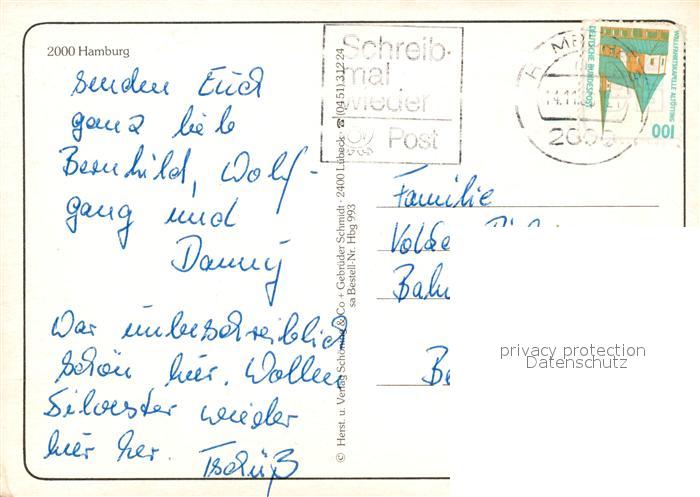 2000 Hamburg
senden Euch
ganz lieb
Bernhild, Wolf-
gang und
Danny
War unbeschreiblich
schön hier. Wollen
Silvester wieder
hier her. Tschüß
© Herst. u. Verlag Schöning & Co + Gebrüder Schmidt · 2400 Lübeck · ☎ (0451) 31 22 24
sa Bestell-Nr. Hbg 993
Schreib-
mal
wieder
Post
2000
DEUTSCHE BUNDESPOST
WALLFAHRTSKAPELLE ALTÖTTING
100
Familie
Bahn
Be
privacy protection
Datenschutz